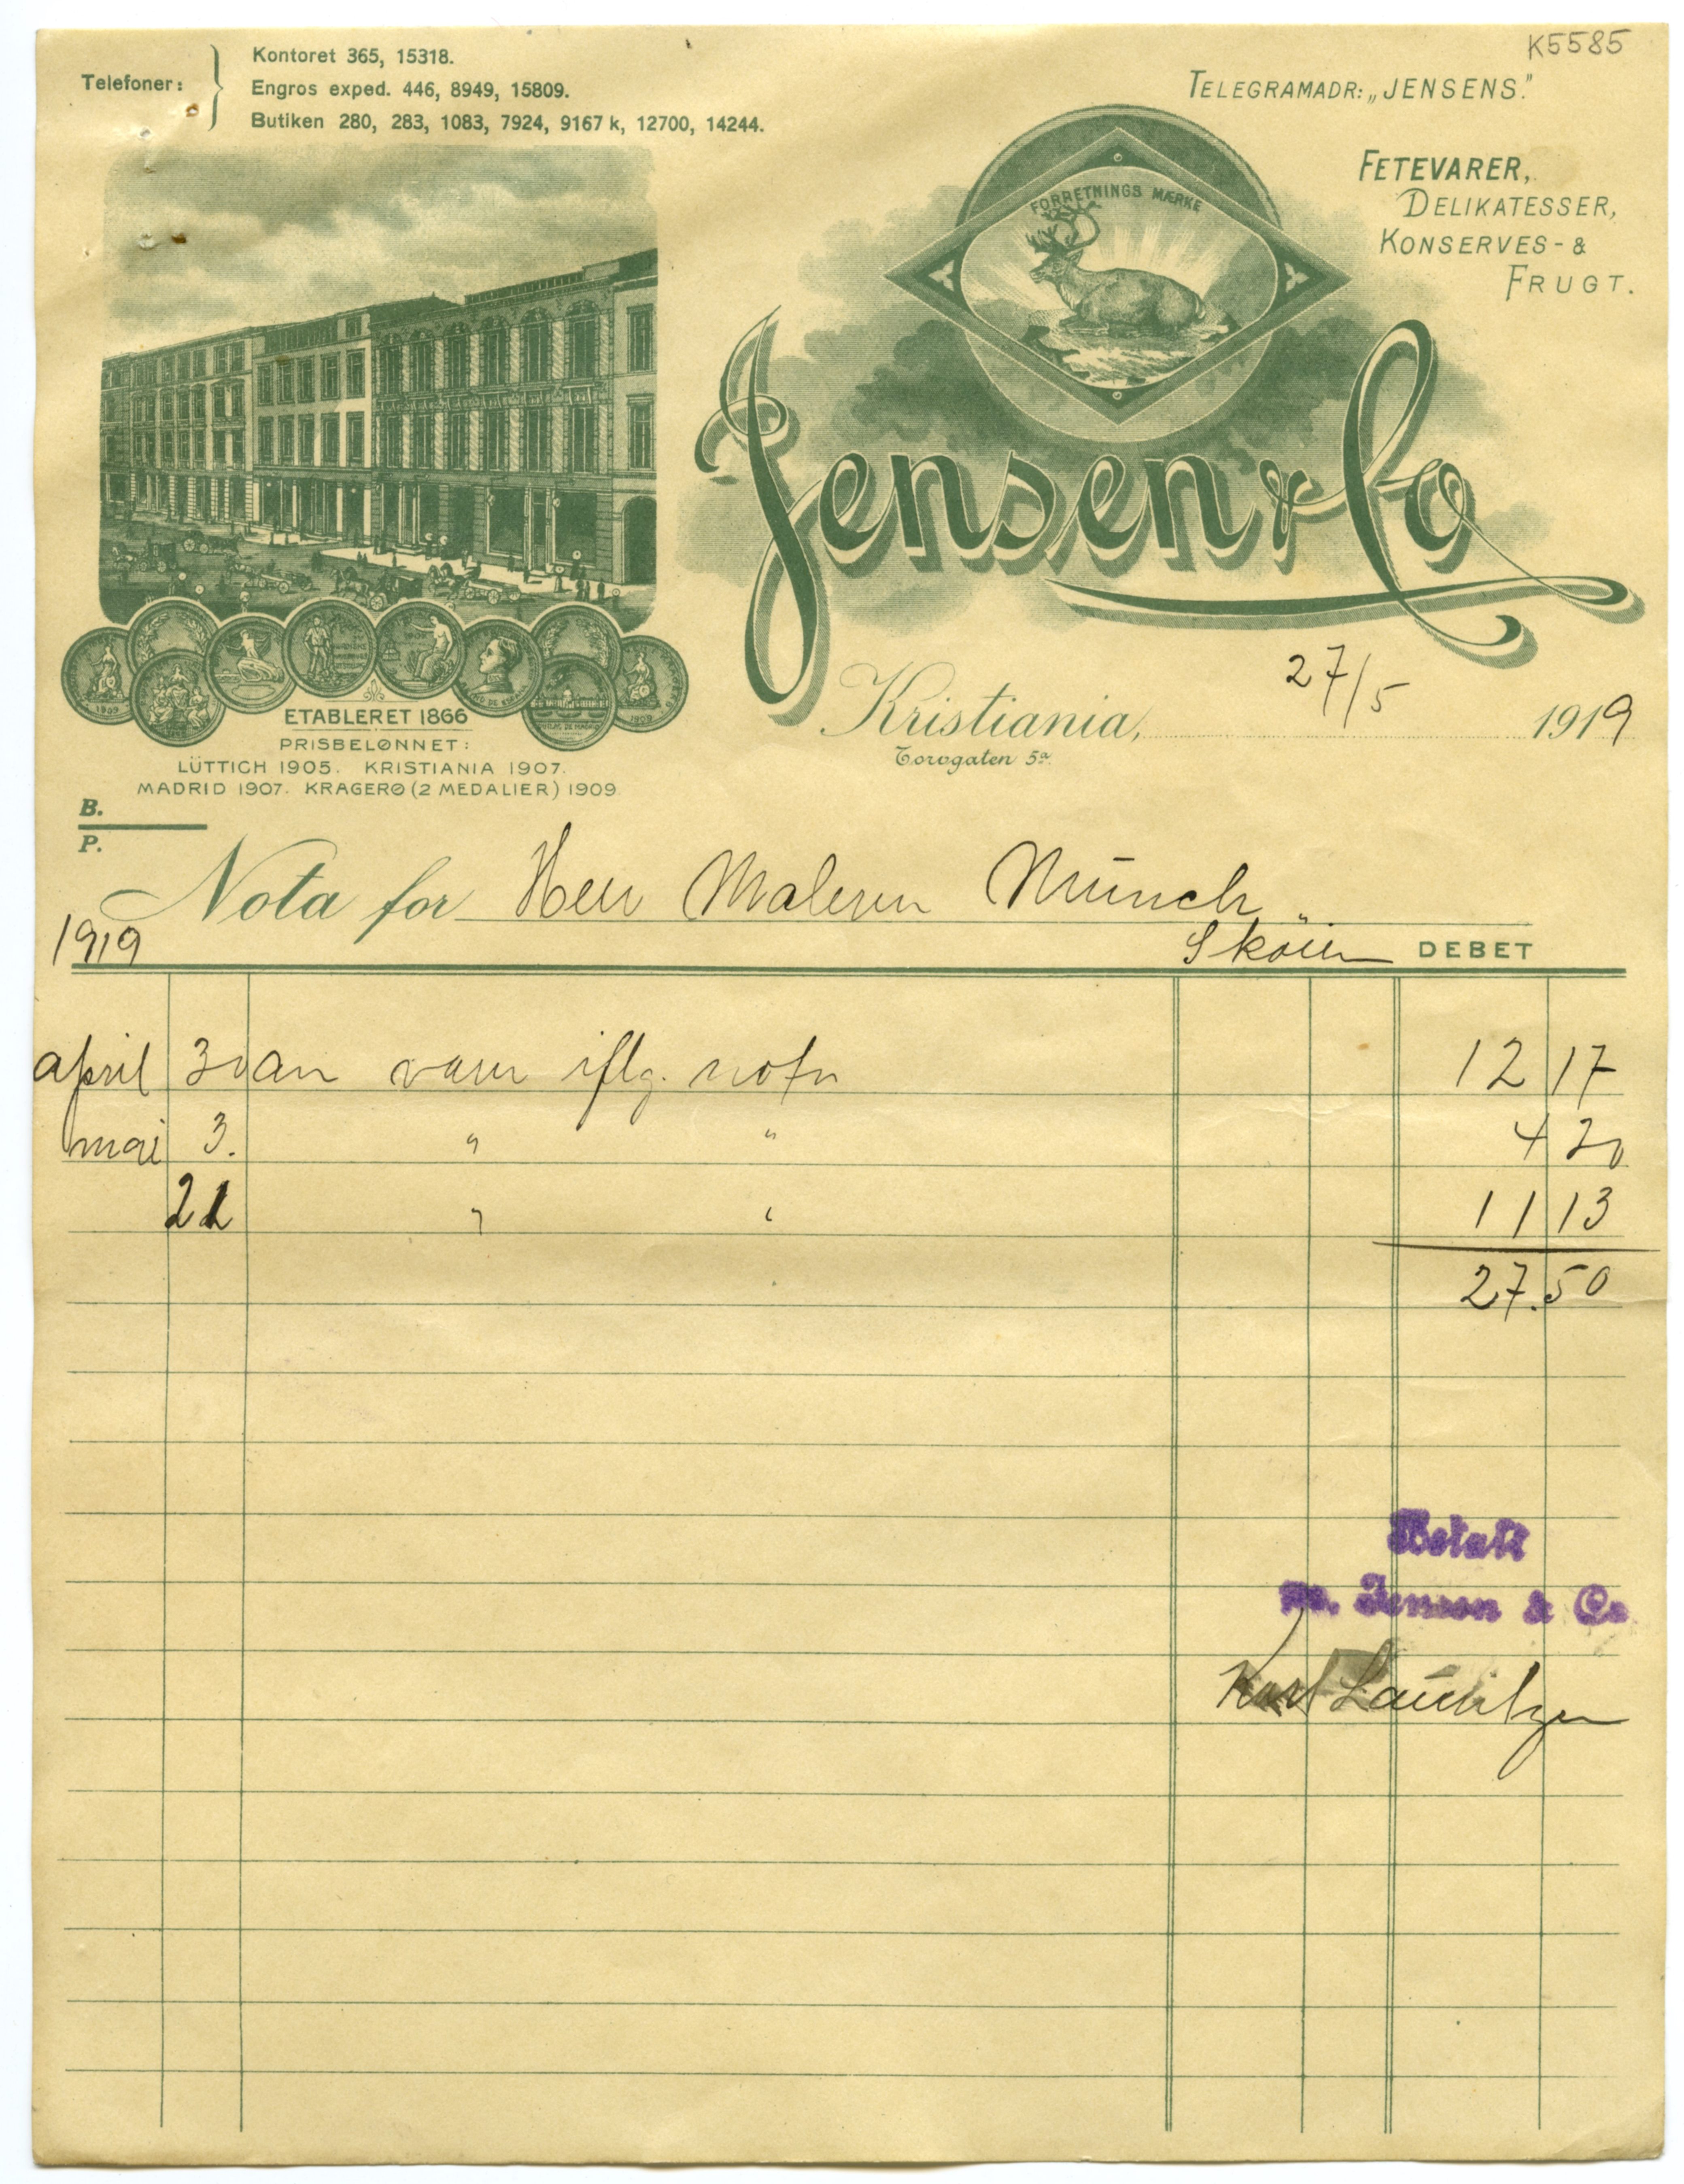 K5585
Kontoret 365, 15318.
Telefoner:
Engros exped. 446, 8949, 15809.
Butiken 280, 283, 1083, 7924, 9167 k, 12700, 14244.
TELEGRAMADR: „JENSENS."
FETEVARER,
DELIKATESSER,
KONSERVES- &
FRUGT.
FORRETNINGS MÆRKE
Jensen & Co
ETABLERET 1866
PRISBELØNNET:
LÜTTICH 1905. KRISTIANIA 1907.
MADRID 1907. KRAGERØ (2 MEDALIER) 1909.
Kristiania, 27/5 1919
Torvgaten 5a.
B.
P.
Nota for Herr Maleren Münch
1919 Sköien DEBET
april 30 an varer iflg. nota 12 17
mai 3. " " 4 20
21 " " 11 13
27.50
Betalt
pr. Jensen & Co
Karl Lauritzen